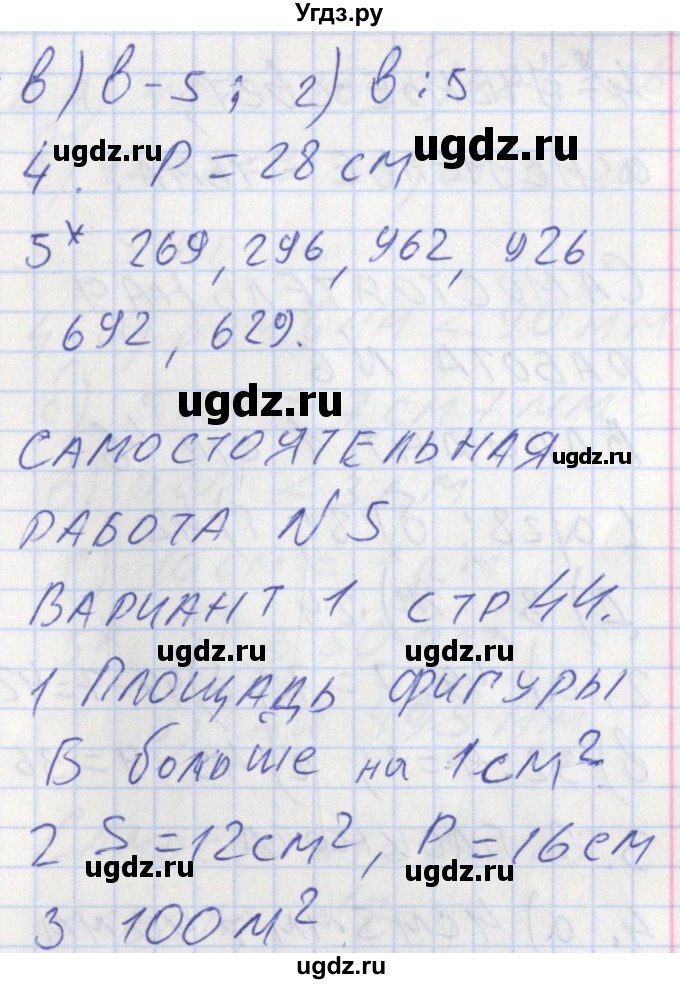 Угдз.ру
в) в - 5 ; г) в : 5
4. P = 28 см
5* 269, 296, 962, 926
692, 629.
САМОСТОЯТЕЛЬНАЯ
РАБОТА N 5
ВАРИАНТ 1 СТР 44.
1 ПЛОЩАДЬ ФИГУРЫ
В больше на 1 см²
2 S = 12 см², P = 16 см
3 100 м²
ugdz.ru
ugdz.ru
ugdz.ru
ugdz.ru
ugdz.ru
ugdz.ru
ugdz.ru
ugdz.ru
ugdz.ru